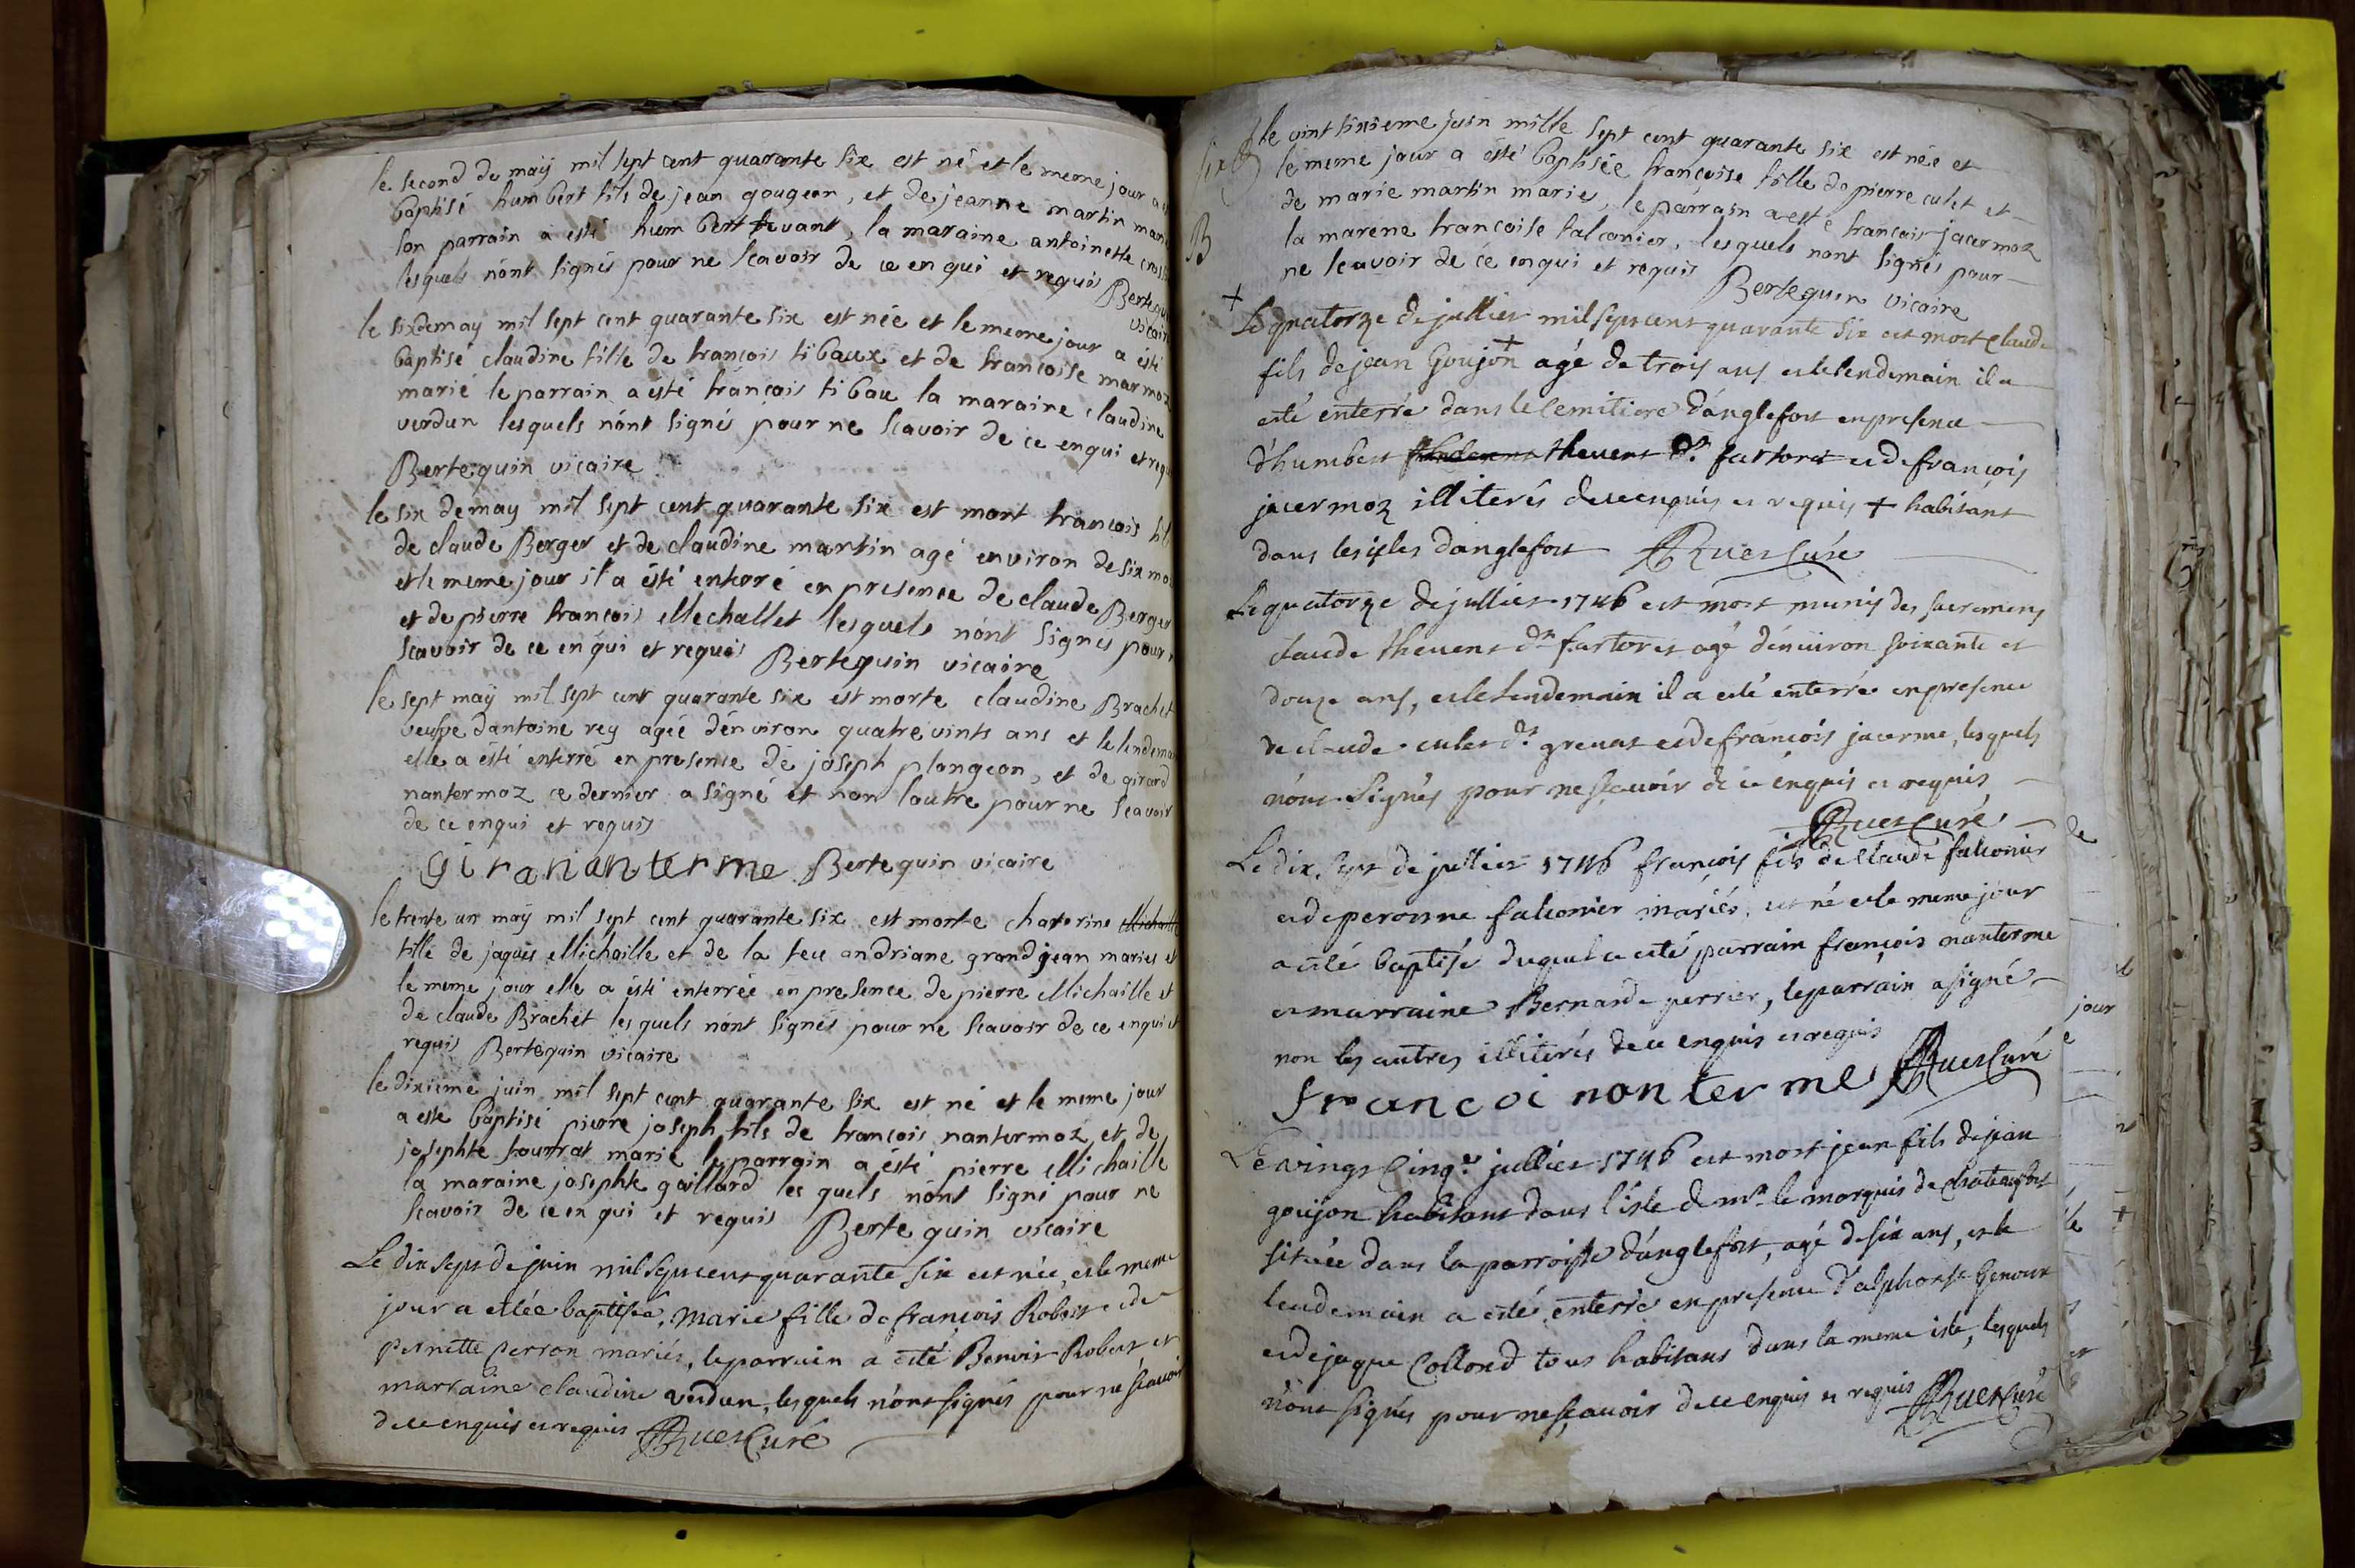 le second de maÿ mil sept cent quarante six est né et le meme jour a
baptisé humbert fils de jean gougeon, et de jeanne martin marié
son parrain a esté humbert tevant, la maraine antoinette
lesquels nónt signés pour ne scavoir de ce en qui et requis Bertequ
vicair
le six de may mil sept cent quarante six est née et le meme jour a ésté
baptisé claudine fille de francois tibaux et de francoise marmoz
marié le parrain a ésté francois tibau la maraine claudine
verdun lesquels nónt signé pour ne scavoir de ce en qui et requ
Bertequin vicaire
le six de may mil sept cent quarante six est mort francois fil
de claude Berger et de claudine martin agé environ de six mo
et le meme jour il a ésté enterré en presence de claude Berger
et de pierre francois Mechallet lesquels nónt signes pour n
scavoir de ce en qui et requis Bertequin vicaire
le sept maÿ mil sept cent quarante six est morte claudine Brachet
veufve dantoine rey agée dénviron quatre vints ans et le lendemai
elle a ésté enterré en presense de joseph plongeon, et de girard
nantermoz ce dernier a signé et non lautre pour ne scavoir
de ce enqui et requis
giranianterme Bertequin vicaire
le trente un maÿ mil sept cent quarante six est morte chaterine Michaille
fille de jaques Michaille et de la feue andriane grand jean maries et
le meme jour elle a ésté enterrée en presence de pierre Michaille et
de claude Brachet les quels nónt signés pour ne scavoir de ce enqui et
requis Bertequin vicaire
le dixieme juin mil sept cent quarante six est né et le meme jour
a esté baptisé pierre joseph fils de francois nantermoz et de
josephte fourrat marié le parrain a ésté pierre Michaille
la maraine josephte gaillard les quels nónt signé pour ne
scavoir de ce en qui et requis Bertequin vicaire
Le dix sept de juin mil sept cent quarante six est née, et le meme
jour a estée baptisée, Marie fille de françois Robert et de
pernette perron mariés, le parrain a esté Benoit Robert et
marraine claudine verdun, lesquels n'ont signés pour ne scavoir
de ce enquis et requis RuesCuré
le vint sixieme juin mille sept cent quarante six est née et
le meme jour a ésté baptisée francoise fille de pierre culet et
de marie martin maries, le parrain a esté francois jacermoz
la marene francoise falconier, lesquels nont signés pour
ne scavoir de cé en qui et requis Bertequin vicaire
B
+
Le quatorze de jullier mil sept cent quarante six est mort claude
fils de jean Goujon + agé de trois ans et le lendemain il a
esté enterré dans le cemitiere d'anglefort en presence
d'humbert thevent dt. fartoret et de françois
jacermoz illiterés de ce enquis et requis + habitant
dans les isles danglefort RuesCuré
Le quatorze de jullier 1746 est mort munis des sacremens
claude thevent dt fartoret agé dénviron soixante et
douze ans, et le lendemain il a esté enterré en presence
de claude culet dt. grenat et de françois jacerme, lesquels
nónt signés pour ne sçavoir de ce enquis et requis
RuesCuré
Le dix sept de jullier 1746 françois fils de Claude falconier
et de peronne falconier mariés, est né et le meme jour
a esté baptisé duquel a esté parrain françois nanterme
et marraine Bernarde perrier, le parrain a signé
non les autres illiterés de ce enquis et requis
francoi nonterme RuesCuré
Le vingt cinqe. jullier 1746 est mort jean fils de jean
goujon habitant dans l'isle de mr. le marquis de chateaufort
située dans la parroisse d'anglefort, agé de six ans, et le
lendemain a esté enterré en presence d'alphonse Genoux
et de jaque Collond tous habitans dans la meme isle, lesquels
n'ont signés pour ne sçavoir de ce enquis et requis RuesCuré
jour